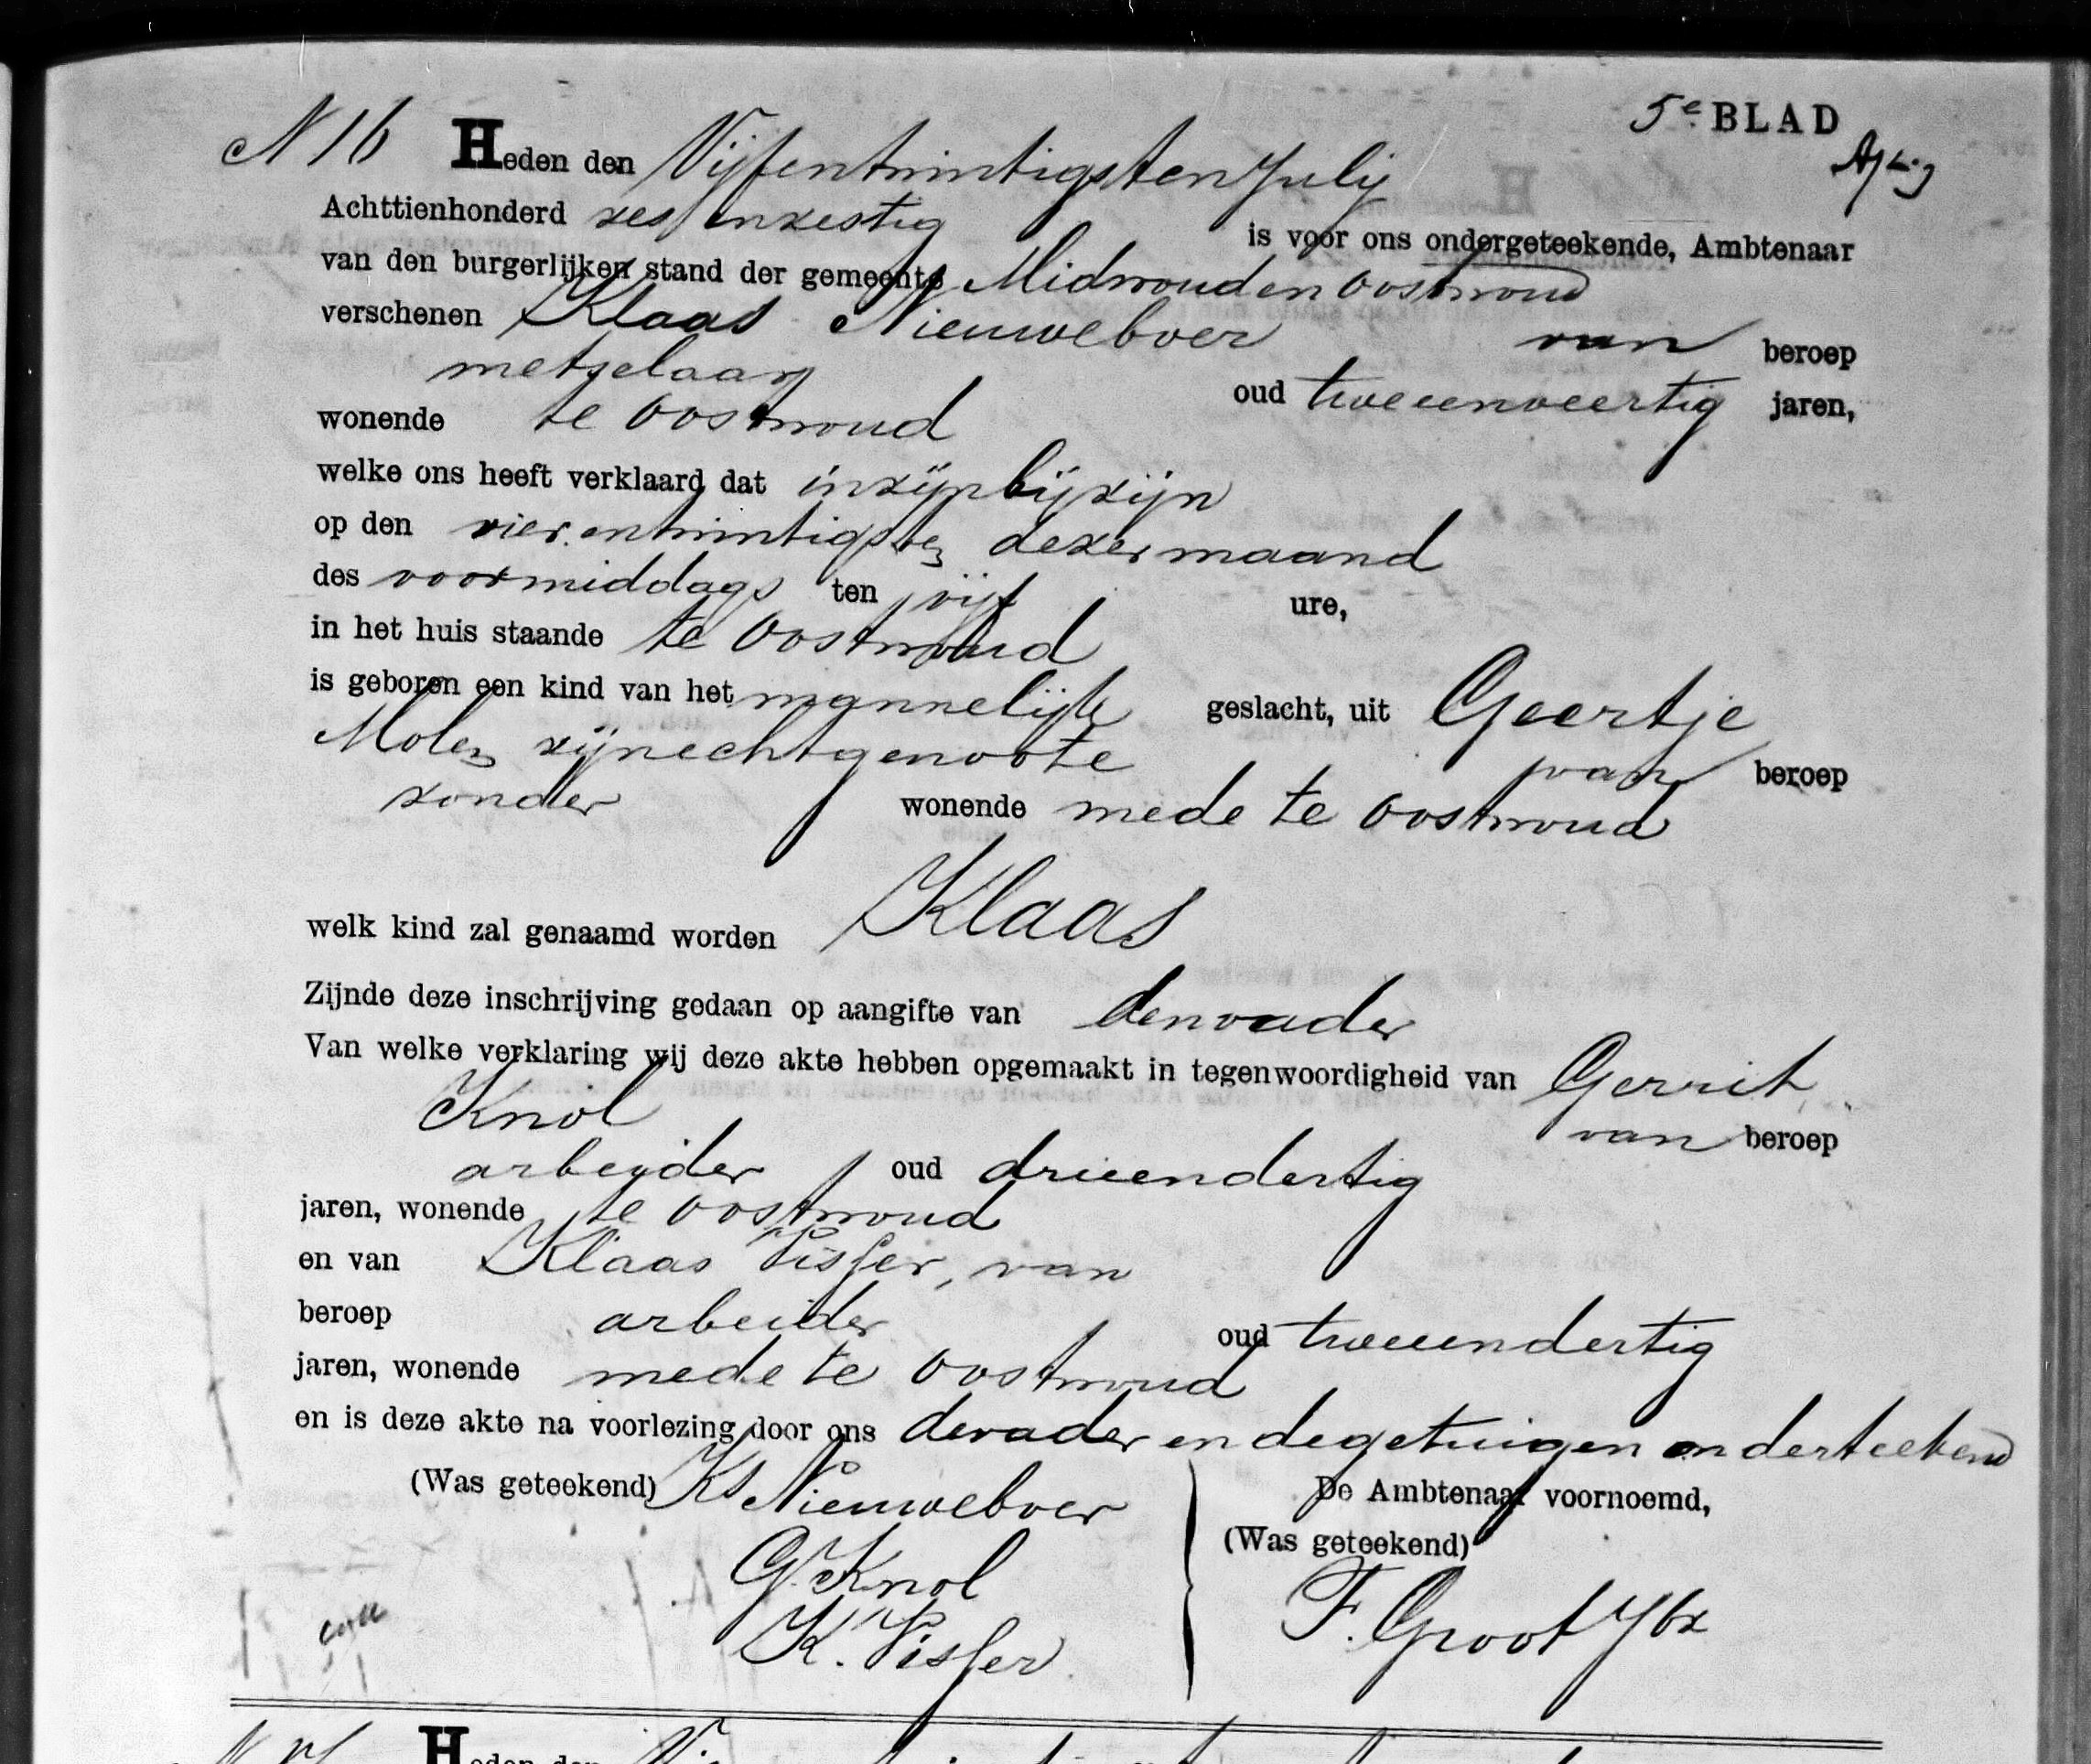 5e BLAD
N 16 Heden den Vijfentwintigsten July
Achttienhonderd zes en zestig is voor ons ondergeteekende, Ambtenaar
van den burgerlijken stand der gemeente Midwoud en Oostwoud
verschenen Klaas Nieuweboer van beroep
metselaar oud tweeenveertig jaren,
wonende te Oostwoud
welke ons heeft verklaard dat in zijn bijzijn
op den vier en twintigsten dezer maand
des voormiddags ten vijf ure,
in het huis staande te Oostwoud
is geboren een kind van het mannelijk geslacht, uit Geertje
Molen zijn echtgenoote van beroep
zonder wonende mede te Oostwoud
welk kind zal genaamd worden Klaas
Zijnde deze inschrijving gedaan op aangifte van den vader
Van welke verklaring wij deze akte hebben opgemaakt in tegenwoordigheid van Gerrit
Knol van beroep
arbeyder oud drieendertig
jaren, wonende te Oostwoud
en van Klaas Visser, van
beroep arbeider oud tweeendertig
jaren, wonende mede te Oostwoud
en is deze akte na voorlezing door ons de vader en de getuigen onderteekend
(Was geteekend) Ks Nieuweboer De Ambtenaar voornoemd,
G. Knol (Was geteekend)
K. Visser F. Groot
Heden den